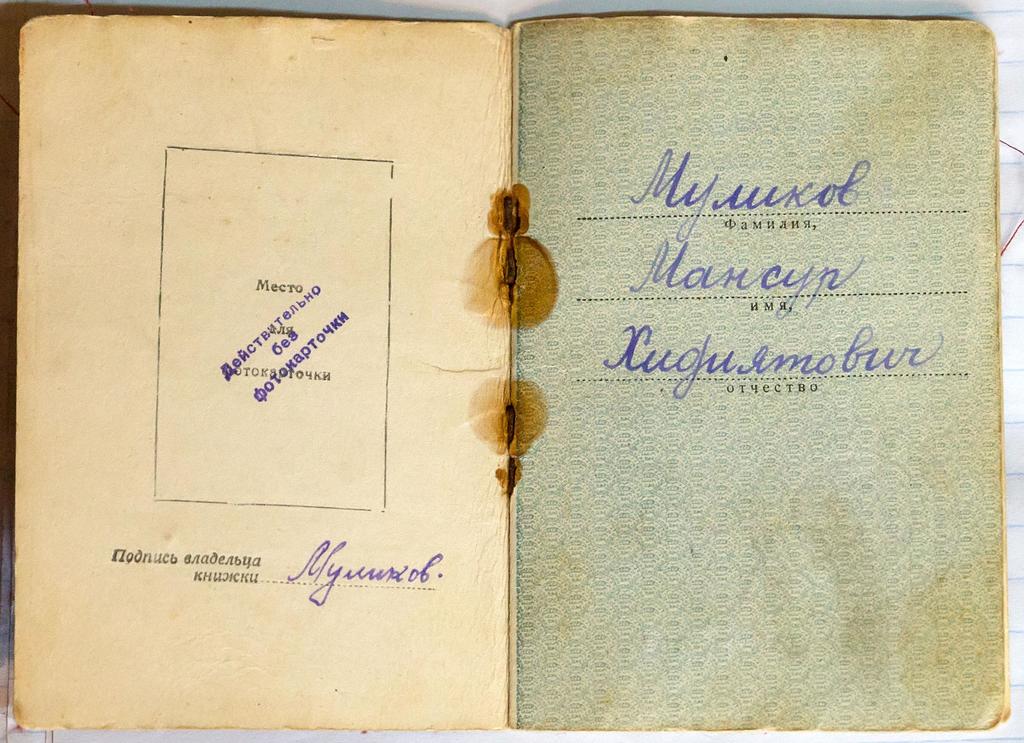 Место
для
фотокарточки
Действительно
без
фотокарточки
Подпись владельца
книжки Муликов.
Муликов
Фамилия,
Мансур
имя,
Хидиятович
отчество